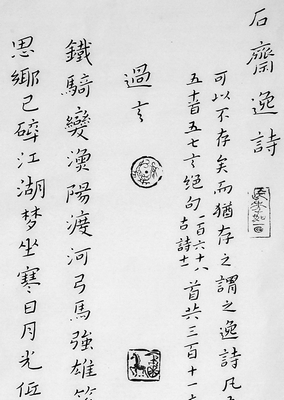 石齋逸詩
可以不存矣而猶存之謂之逸詩凡
五十首五七言絕句一百六十八古詩十首共三百十一
過言
鐵騎變漁陽渡河弓馬強雄
思鄉已碎江湖梦坐寒日月光低